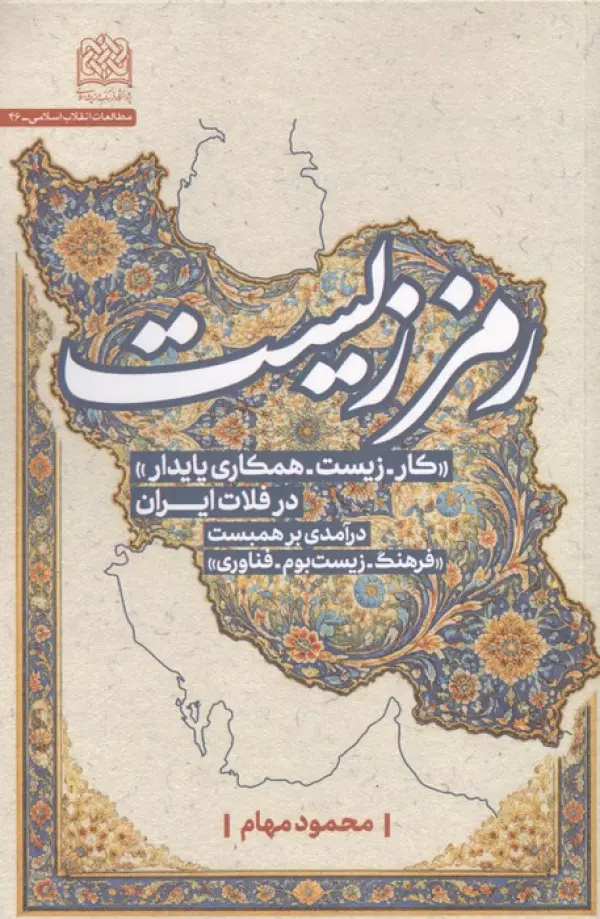 پژوهشگاه فرهنگ و اندیشه اسلامی
مطالعات انقلاب اسلامی - ۴۶
رمز زیست
«کار - زیست - همکاری پایدار»
در فلات ایران
درآمدی بر همبست
«فرهنگ - زیست‌بوم - فناوری»
محمود مهام